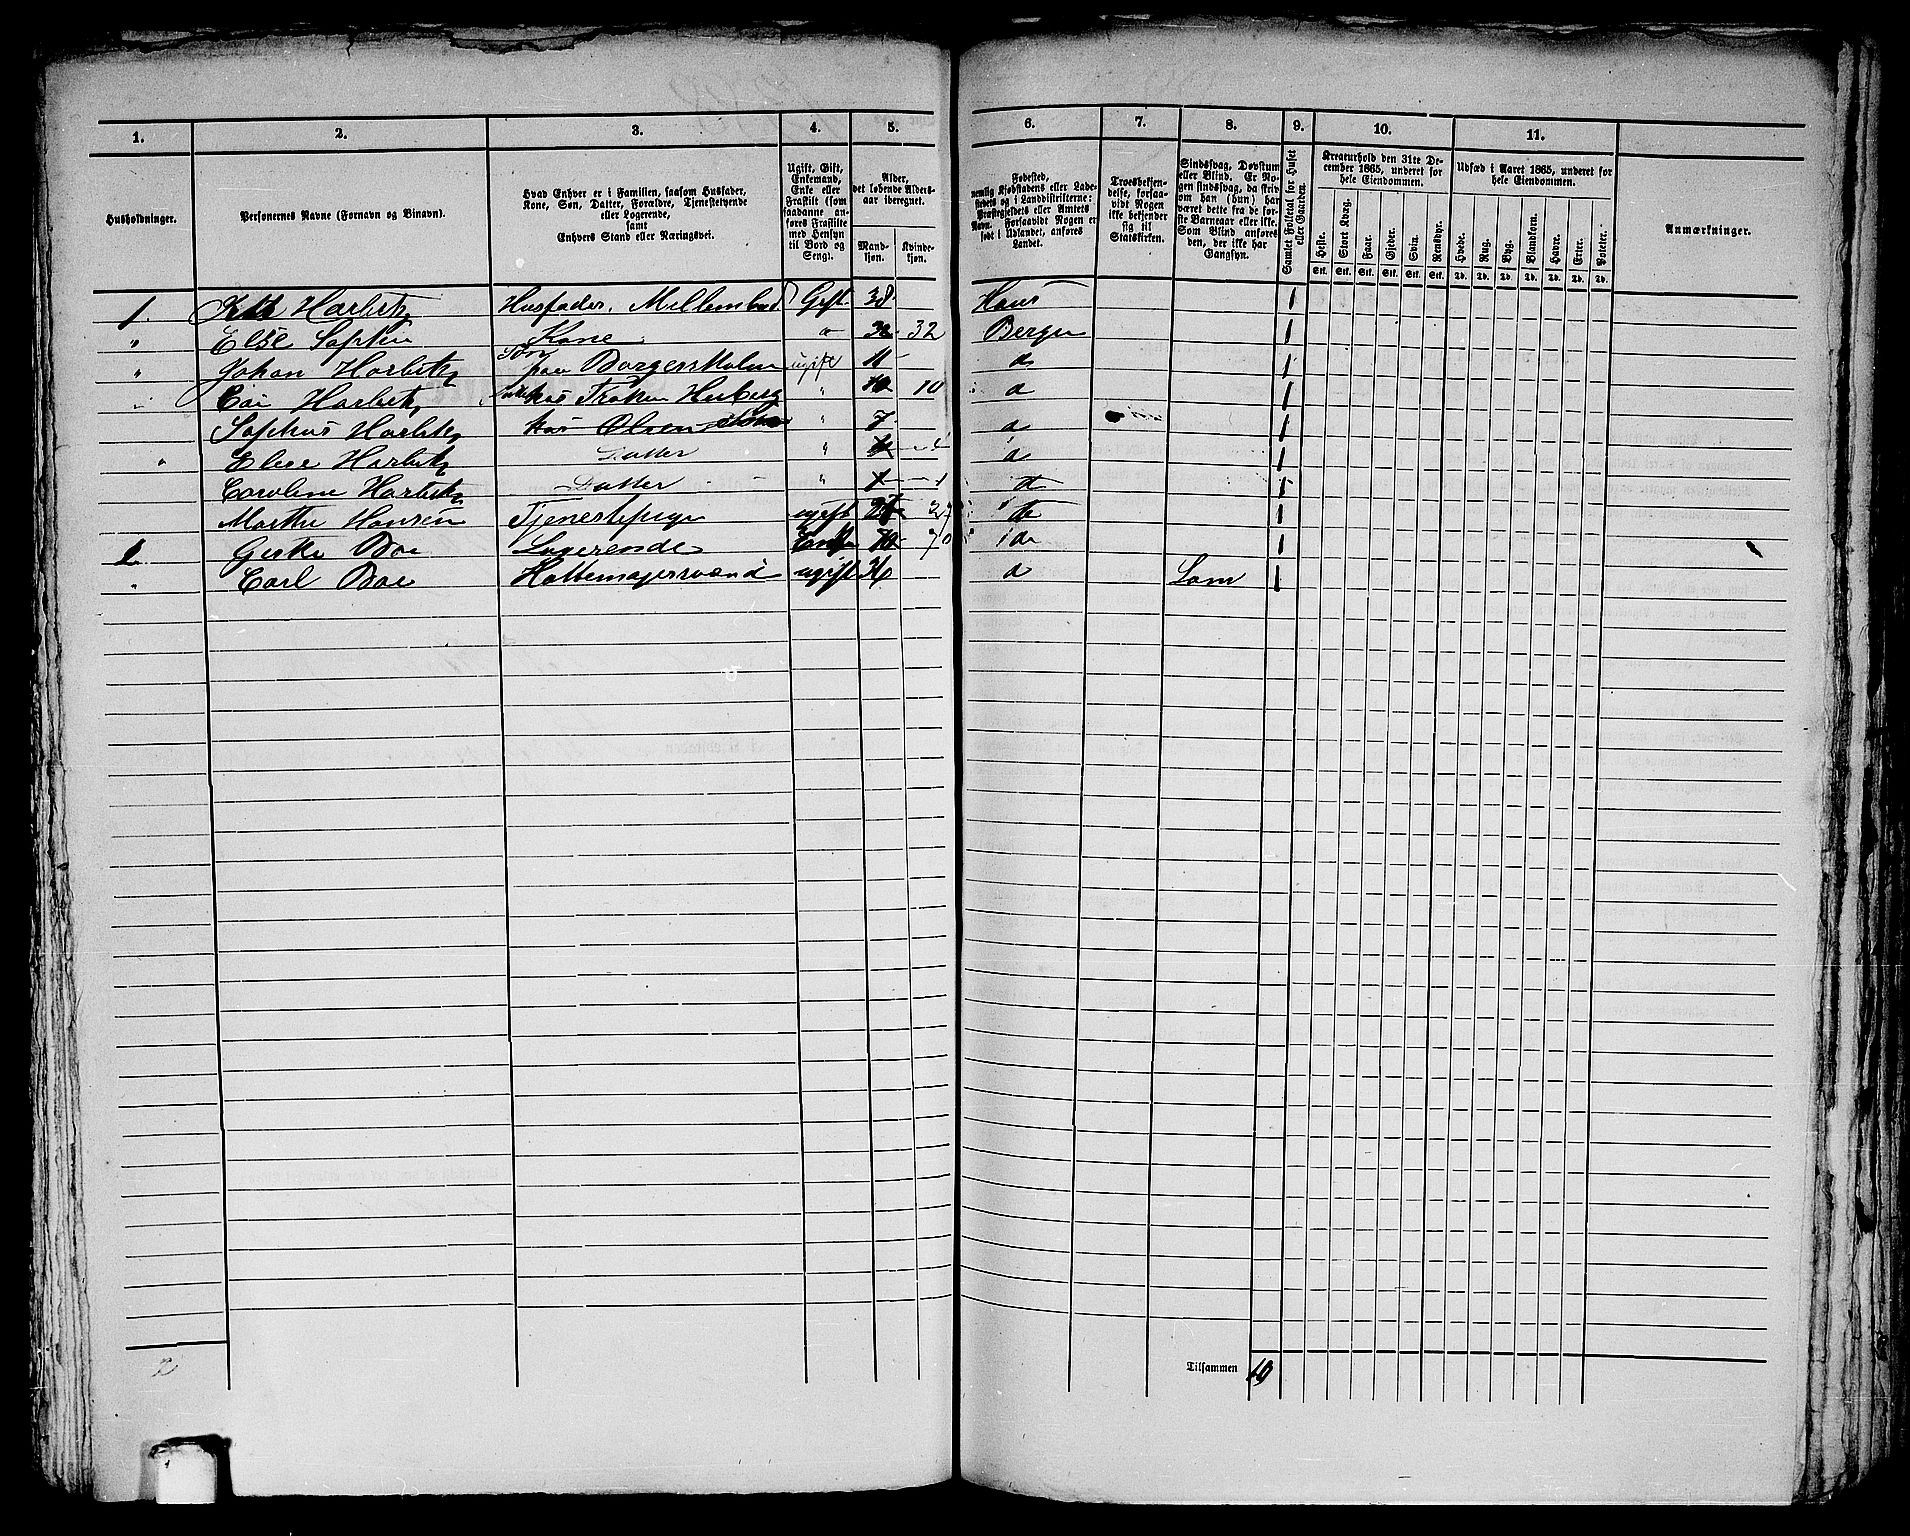 1. 2. 3. 4. 5. 6. 7. 8. 9. 10. 11.
Husholdninger.
Personernes Navne (Fornavn og Binavn).
Hvad Enhver er i Familien, saasom Husfader,
Kone, Søn, Datter, Forældre, Tjenestetyende
eller Logerende,
samt
Enhvers Stand eller Næringsvei.
Ugift, Gift,
Enkemand,
Enke eller
Fraskilt (som
saadanne an-
føres Fraskilte
med Hensyn
til Bord og
Seng).
Alder,
det løbende Alders-
aar iberegnet.
Mand-
kjøn.
Kvinde-
kjøn.
Fødested,
nemlig Kjøbstadens eller Lade-
stedets og i Landdistrikterne:
Præstegjeldets eller Amtets
Navn. Forsaavidt Nogen er
født i Udlandet, anføres
Landet.
Troesbekjen-
delse, forsaa-
vidt Nogen
ikke bekjender
sig til
Statskirken.
Sindssvag, Døvstum
eller Blind. Er No-
gen sindssvag, da skriv
om han (hun) har
været dette fra de før-
ste Barneaar eller ikke.
Som Blind anføres
den, der ikke har
Gangsyn.
Samlet Folketal for Huset
eller Gaarden.
Kreaturhold den 31te De-
cember 1865, underet for
hele Eiendommen.
Heste. Stort Kvæg. Faar. Gjeder. Svin. Rensdyr.
Stk. Stk. Stk. Stk. Stk. Stk.
Udsæd i Aaret 1865, underet for
hele Eiendommen.
Hvede. Rug. Byg. Blandkorn. Havre. Erter. Poteter.
Td. Td. Td. Td. Td. Td. Td.
Anmærkninger.
1. Harbitz Husfader. Gift 38 Haus 1
" Else Kone " 32 32 Bergen 1
" Johan Harbitz Søn paa Borgerskolen ugift 11 d 1
" Harbitz hos Frøken Herberg " 10 10 d 1
Sophus Harbitz hos Olsen " 7 d 1
" Elese Harbitz Datter " 4 d 1
Caroline Harbitz Datter " 1 1 d 1
Marthe Hansen Tjenestepige ugift 27 27 do 1
2 Gerke Boe Logerende Enke 70 70 do 1
" Carl Boe Hattemagersvend ugift 36 d Lam 1
2
Tilsammen 10